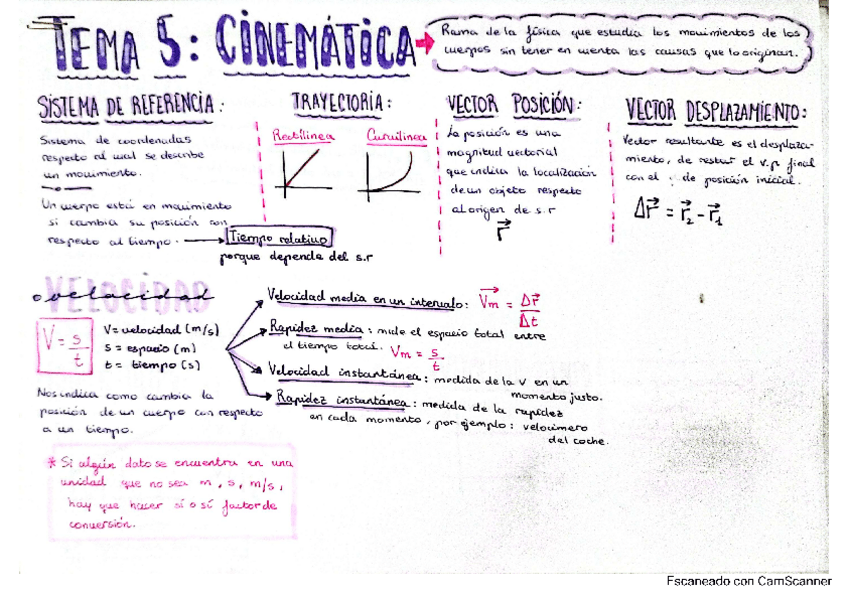 TEMA 5: CINEMÁTICA
Rama de la física que estudia los movimientos de los
cuerpos sin tener en cuenta las causas que lo originan.
SISTEMA DE REFERENCIA:
Sistema de coordenadas
respecto al cual se describe
un movimiento.
Un cuerpo está en movimiento
si cambia su posición con
respecto al tiempo.
Tiempo relativo
porque depende del s.r
TRAYECTORIA:
Rectilínea
Curvilínea
VECTOR POSICIÓN:
La posición es una
magnitud vectorial
que indica la localización
de un objeto respecto
al origen de s.r
r⃗
VECTOR DESPLAZAMIENTO:
Vector resultante es el desplaza-
miento, de restar el v.p final
con el de posición inicial.
Δr⃗ = r⃗₂ - r⃗₁
VELOCIDAD
velocidad
V = s/t
V = velocidad (m/s)
s = espacio (m)
t = tiempo (s)
Nos indica como cambia la
posición de un cuerpo con respecto
a un tiempo.
Velocidad media en un intervalo: V⃗m = Δr⃗/Δt
Rapidez media: mide el espacio total entre
el tiempo total. Vm = s/t
Velocidad instantánea: medida de la v en un
momento justo.
Rapidez instantánea: medida de la rapidez
en cada momento, por ejemplo: velocímero
del coche.
* Si algún dato se encuentra en una
unidad que no sea m, s, m/s,
hay que hacer sí o sí factor de
conversión.
Escaneado con CamScanner